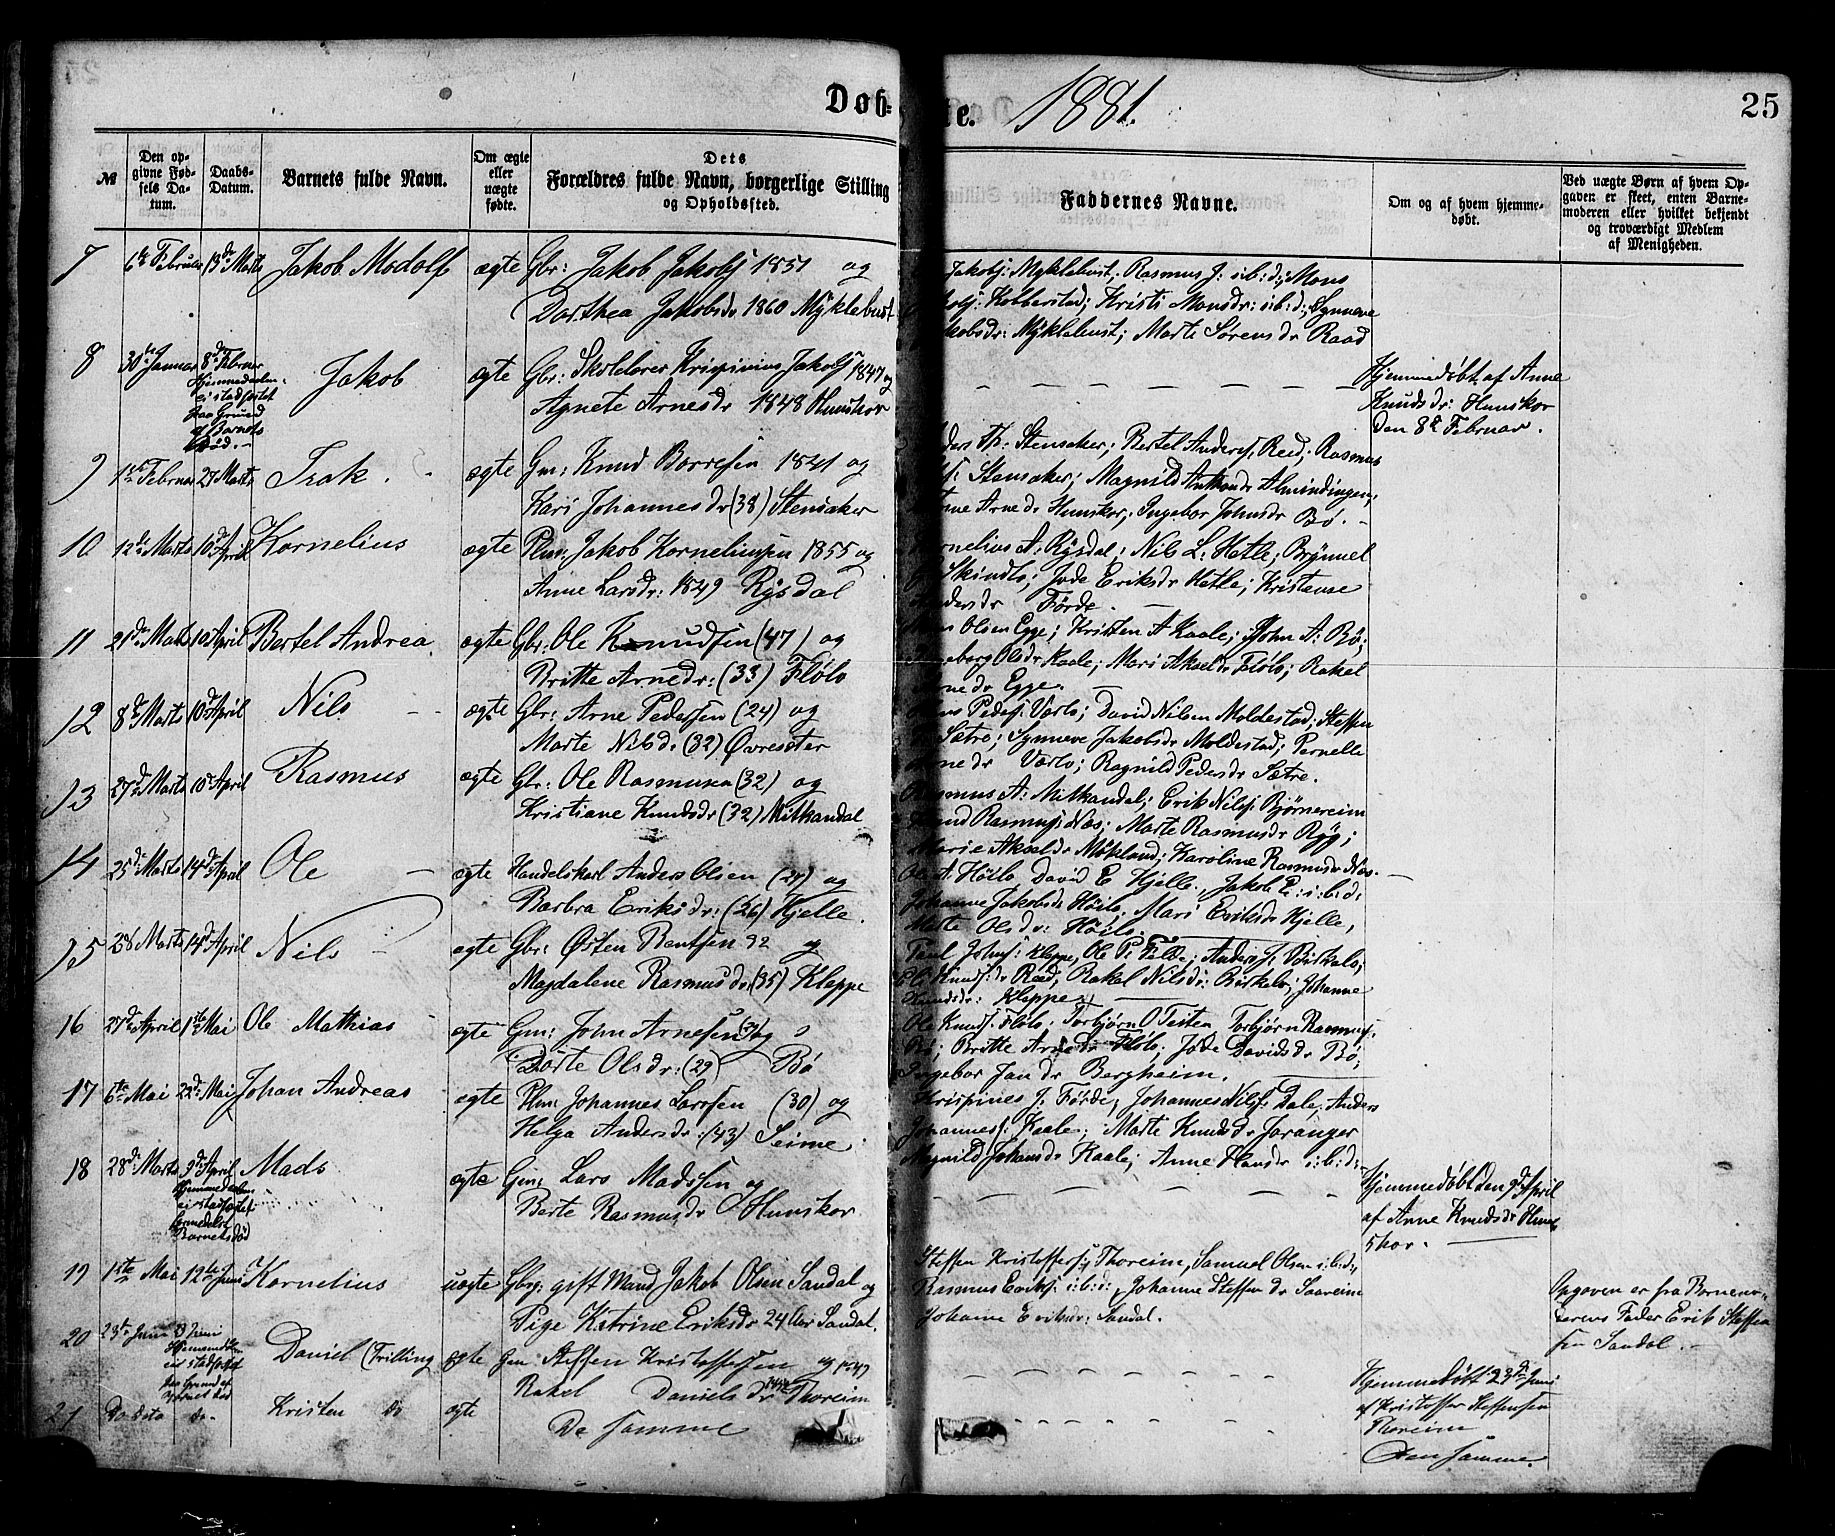 Døb-
te. 1881.
25
№
Den op-
givne Fød-
sels Da-
tum.
Daabs-
Datum.
Barnets fulde Navn.
Om ægte
eller
uægte
fødte.
Dets
Forældres fulde Navn, borgerlige Stilling
og Opholdssted.
Faddernes Navne.
Om og af hvem hjemme-
døbt.
Ved uægte Børn af hvem Op-
gaven er skeet, enten Barne-
moderen eller hvilket bekjendt
og troværdigt Medlem
af Menigheden.
7 6te Februar 13de Marts Jakob Modolf ægte Gbr: Jakob Jakobs 1851 og
Dorthea Jakobsdr 1860 Myklebust
Jakobs: Myklebust; Rasmus J: i:b:d:; Mons
Kobberstad; Kristi Monsdr: i:b:d:; Synneve
Jakobsdr: Myklebust; Marte Sørensdr Raad
8 30te Januar 8de Februar Jakob ægte Gbr: Skolelærer Krispinius Jakobs 1847 og
Hjemmedaaben
ei stadfæstet
paa Grund
af Barnets
Død. -
Agnete Arnesdr 1848 Hunskor
Hjemmedøbt af Anne
Knudsdr: Hunskor
den 8de Februar.
9 1ste Februar 27 Marts Isak. ægte Gm: Knud Børresen 1841 og
Kari Johannesdr (38) Stensaker
Th: Stensaker; Bertel Anders. Reed; Rasmus
Stensaker; Magnild Antonsdr Almindingen;
Anne Arnedr Hunskor; Ingebor Johnsdr Bø. -
10 12te Marts 10de April Kornelius ægte Plm: Jakob Korneliusen 1855 og
Anne Larsdr: 1849 Rysdal
Kornelius A. Rysdal; Nils L. Hetle; Brynnel
Skindlo; Jode Eriksdr Hetle; Kristense
Andersdr Førde. -
11 21de Marts 10de April Bertel Andrea. ægte Gbr: Ole Knudsen (47) og
Britte Arnedr: (33) Fløtø
Olsen Egge; Kristen A Kaale; John A: Bø;
Ingeborg Olsdr Kaale; Mari Akseldr Fløtø; Rakel
Arnedr Egge. -
12 8de Marts 10de April Nils ægte Gbr: Arne Pedersen (24) og
Marte Nilsdr (32) Øvresæter
Peders. Vørlo; David Nilsen Moldestad; Steffen
Sætre; Synneve Jakobsdr Moldestad; Pernelle
Arnedr Vørlo; Ragnild Pedersdr Sætre.
13 27de Marts 10de April Rasmus ægte Gbr: Ole Rasmusen (32) og
Kristiane Knudsdr (32) Mitkandal
Rasmus A: Mitkandal; Erik Nils. Bjørnereim
Knud Rasmus. Næs; Marte Rasmusdr Ryg;
Marie Akseldr Mykland; Karoline Rasmusdr Næs.
14 25de Marts 14de April Ole ægte Handelskarl Anders Olsen (27) og
Barbra Eriksdr: (26) Hjelle.
Ole A. Høilo David E Hjelle, Jakob E: i:b:d:
Johanne Jakobsdr Høilo. Mari Eriksdr Hjelle,
Marte Olsdr: Høilo.
15 28 Marts 14de April Nils ægte Gbr: Østen Bentsen 32 og
Magdalene Rasmusdr (35) Kleppe
Paul Johns: Kleppe, Ole P. Felde; Anders J. Birkelo;
Eli Knuds:dr Reed, Rakel Nilsdr: Birkelo; Johanne
Knudsdr: Kleppe.
16 27de April 1ste Mai Ole Mathias ægte Gm: John Arnesen (31) og
Dorte Olsdr: (29) Bø
Ole Knuds. Fløtø; Torbjørn O Teiten Torbjørn Rasmus.
Bø; Britte Arnedr Fløtø; Jode Davidsdr Bø;
Ingebor Jandr Bergheim.
17 6te Mai 22de Mai Johan Andreas ægte Plm: Johannes Larssen (30) og
Helga Andersdr: (43) Seime
Krispines J. Førde; Johannes Nils. Dale; Anders
Johannes. Kaale; Marte Knudsdr Aranger
Magnild Johansdr Kaale; Anne Hansdr i:b:d:
18 28de Marts 9de April Mads ægte Gm: Lars Madssen og
Hjemmedaaben
ei stadfæstet
formedelst
Barnets død
Berte Rasmusdr Hunskor
Hjemmedøbt den 9de April
af Anne Knudsdr Hun-
skor.
19 1ste Mai 12te Juni Kornelius uægte Gbr: gift Mand Jakob Olsen Sandal og
Pige Katrine Eriksdr 24 Aar Sandal.
Steffen Kristoffers. Thoreim, Samuel Olsen i:b:d:,
Rasmus Eriks. i:b:d:, Johanne Steffendr Saareim
Johanne Eriksdr: Sandal.
Opgaven er fra Barnemo-
derens Fader Erik Steffen-
sen Sandal.
20 23de Juni Juni Daniel (Trilling ægte Gm Steffen Kristoffersen og 1849
Hjemmedaaben
ei stadfæstet
paa Grund af
Barnets død
Rakel Danielsdr Thoreim
Hjemmedøbt 23de Juni
af Kristoffer Steffensen
Thoreim
21 Do Dato do- Kristen do ægte De samme
Den samme.